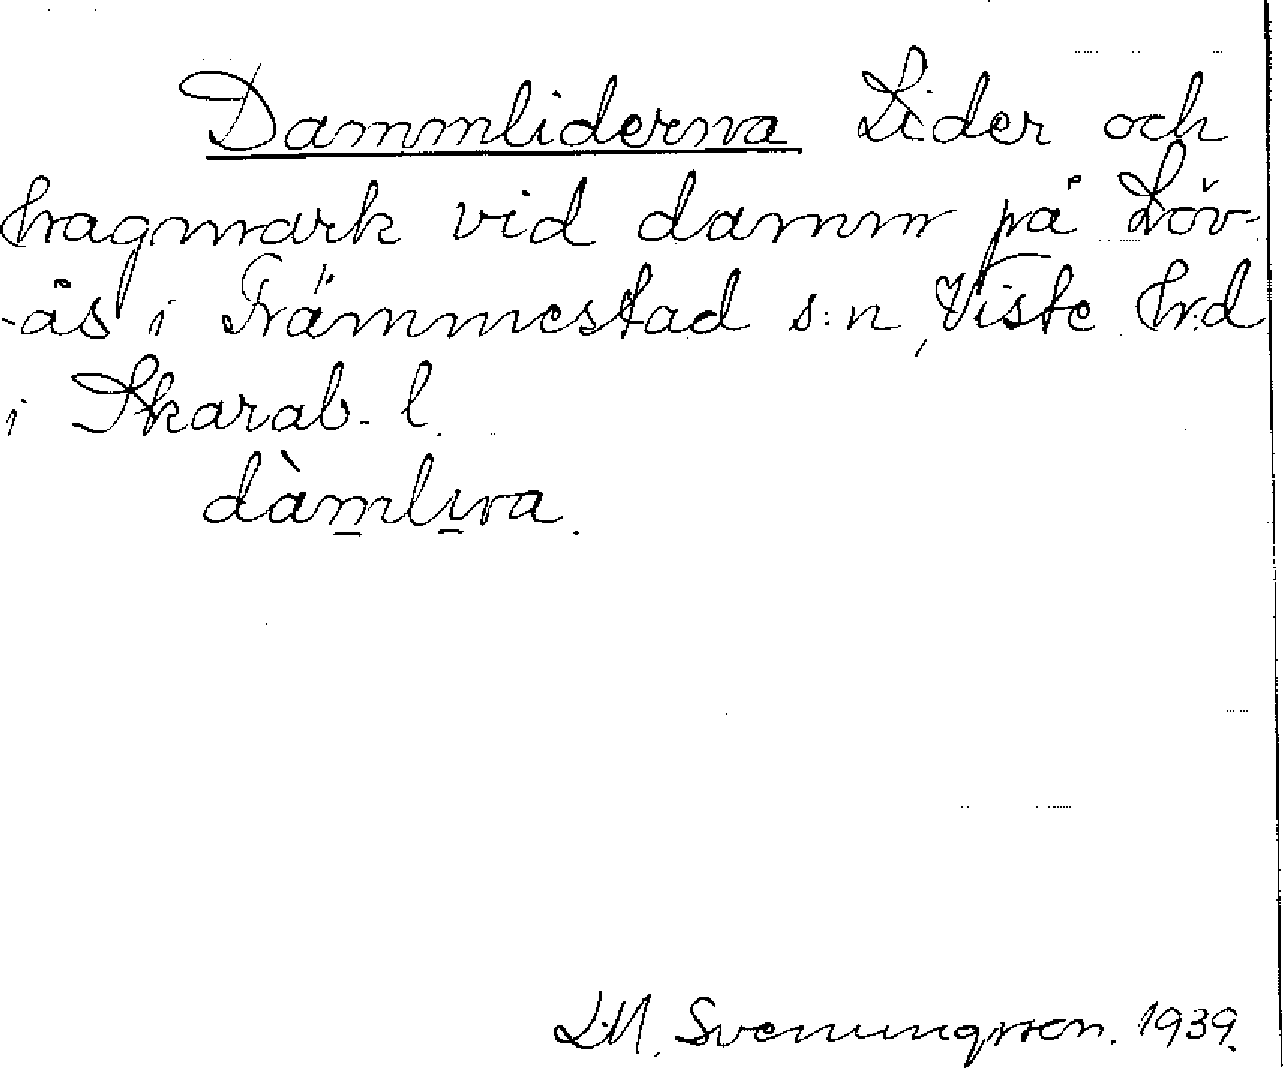 Dammliderna Lider och
hagmark vid damm på Löv-
-ås i Främmestad s:n, Viste hrd
i Skarab. l.
dàm̲lı̲ra.
L.M. Svenungsson. 1939.